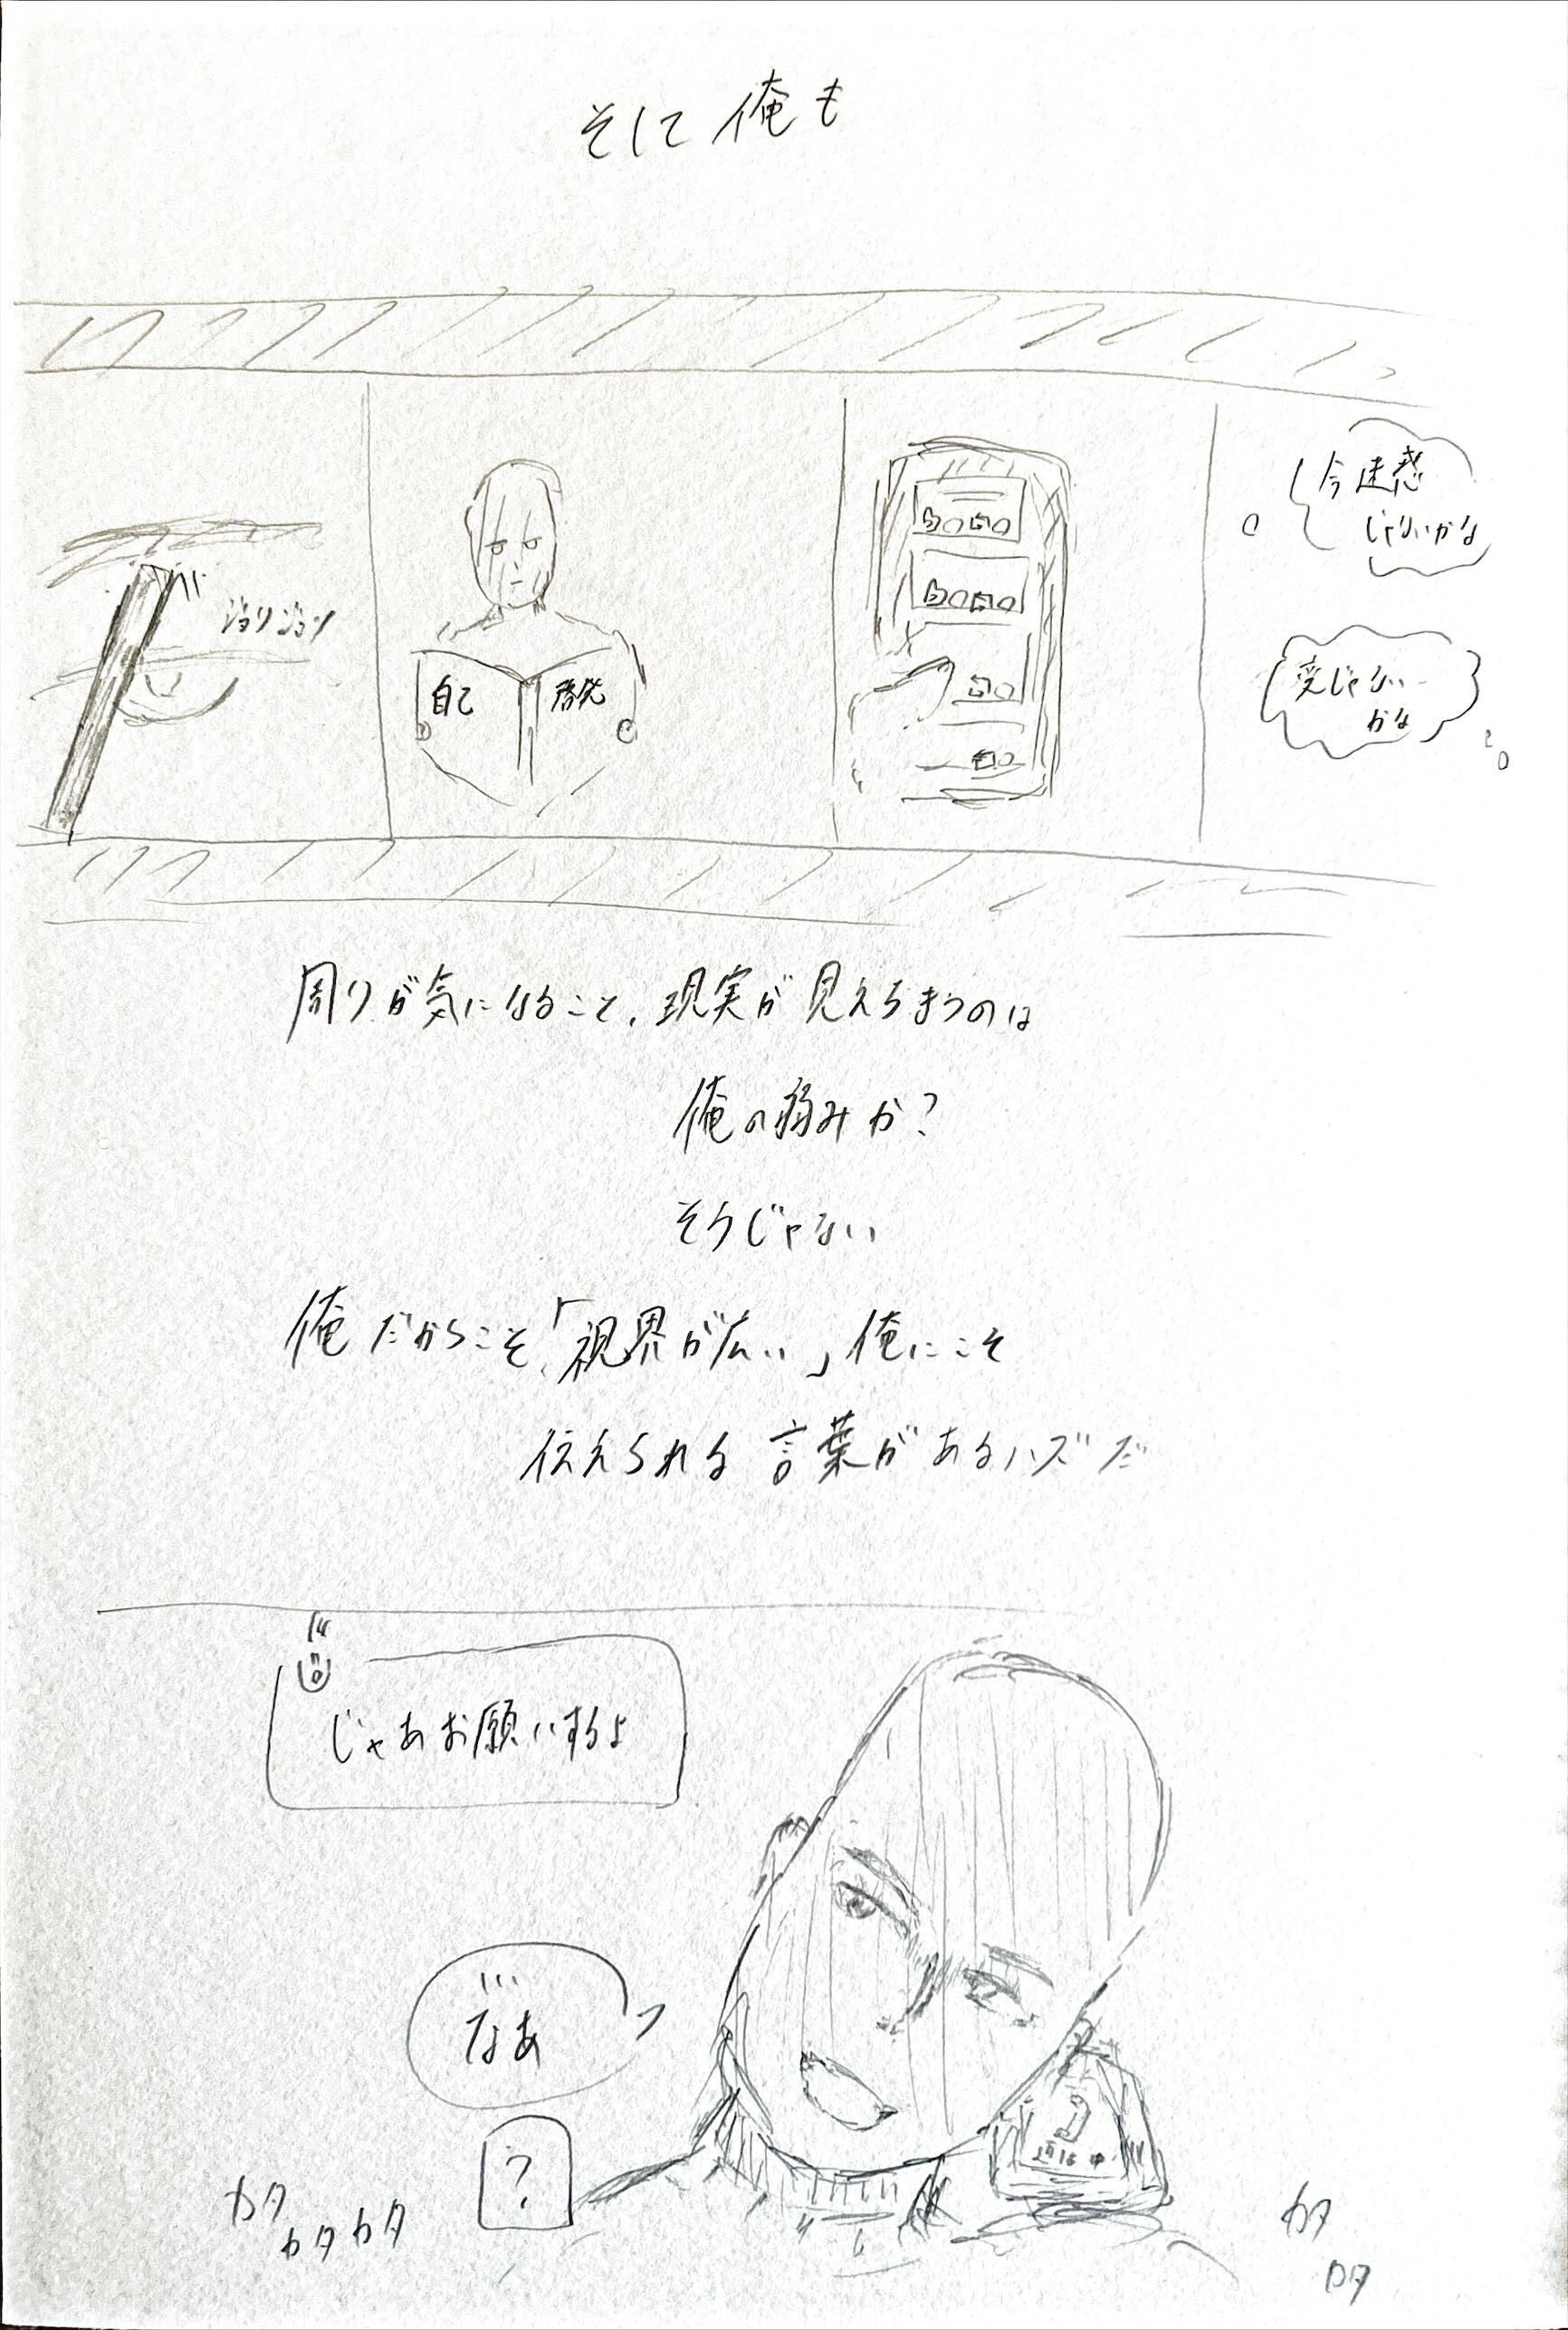 そして俺も
ジョリジョリ
自己
啓発
今迷惑
じゃないかな
変じゃない
かな
周りが気になること、現実が見えちまうのは
俺の弱みか?
そうじゃない
俺だからこそ、「視界が広い」俺にこそ
伝えられる言葉があるハズだ
じゃあお願いするよ
なあ
?
カタ
カタカタ
カタ
カタ